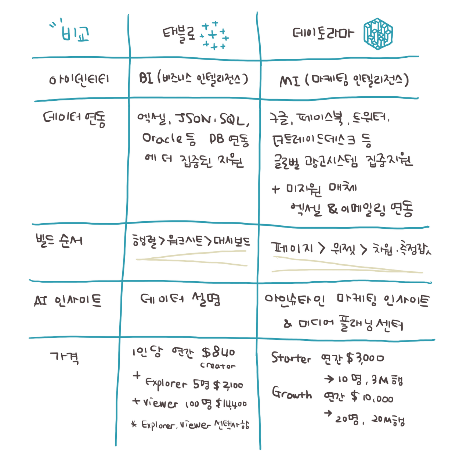 "비교
태블로
데이토라마
아이덴티티
BI (비즈니스 인텔리전스)
MI (마케팅 인텔리전스)
데이터 연동
엑셀, JSON, SQL,
Oracle 등 DB 연동
에 더 집중된 지원
구글, 페이스북, 트위터,
더트레이드데스크 등
글로벌 광고시스템 집중지원
+ 미지원 매체
엑셀 & 이메일링 연동
빌드 순서
행렬 > 워크시트 > 대시보드
페이지 > 위젯 > 차원·측정값
AI 인사이트
데이터 설명
아인슈타인 마케팅 인사이트
& 미디어 플래닝 센터
가격
1인당 연간 $840
creator
+ Explorer 5명 $2,100
+ Viewer 100명 $14,400
* Explorer, Viewer 선택사항
Starter 연간 $3,000
→ 10명, 3M행
Growth 연간 $10,000
→ 20명, 20M행